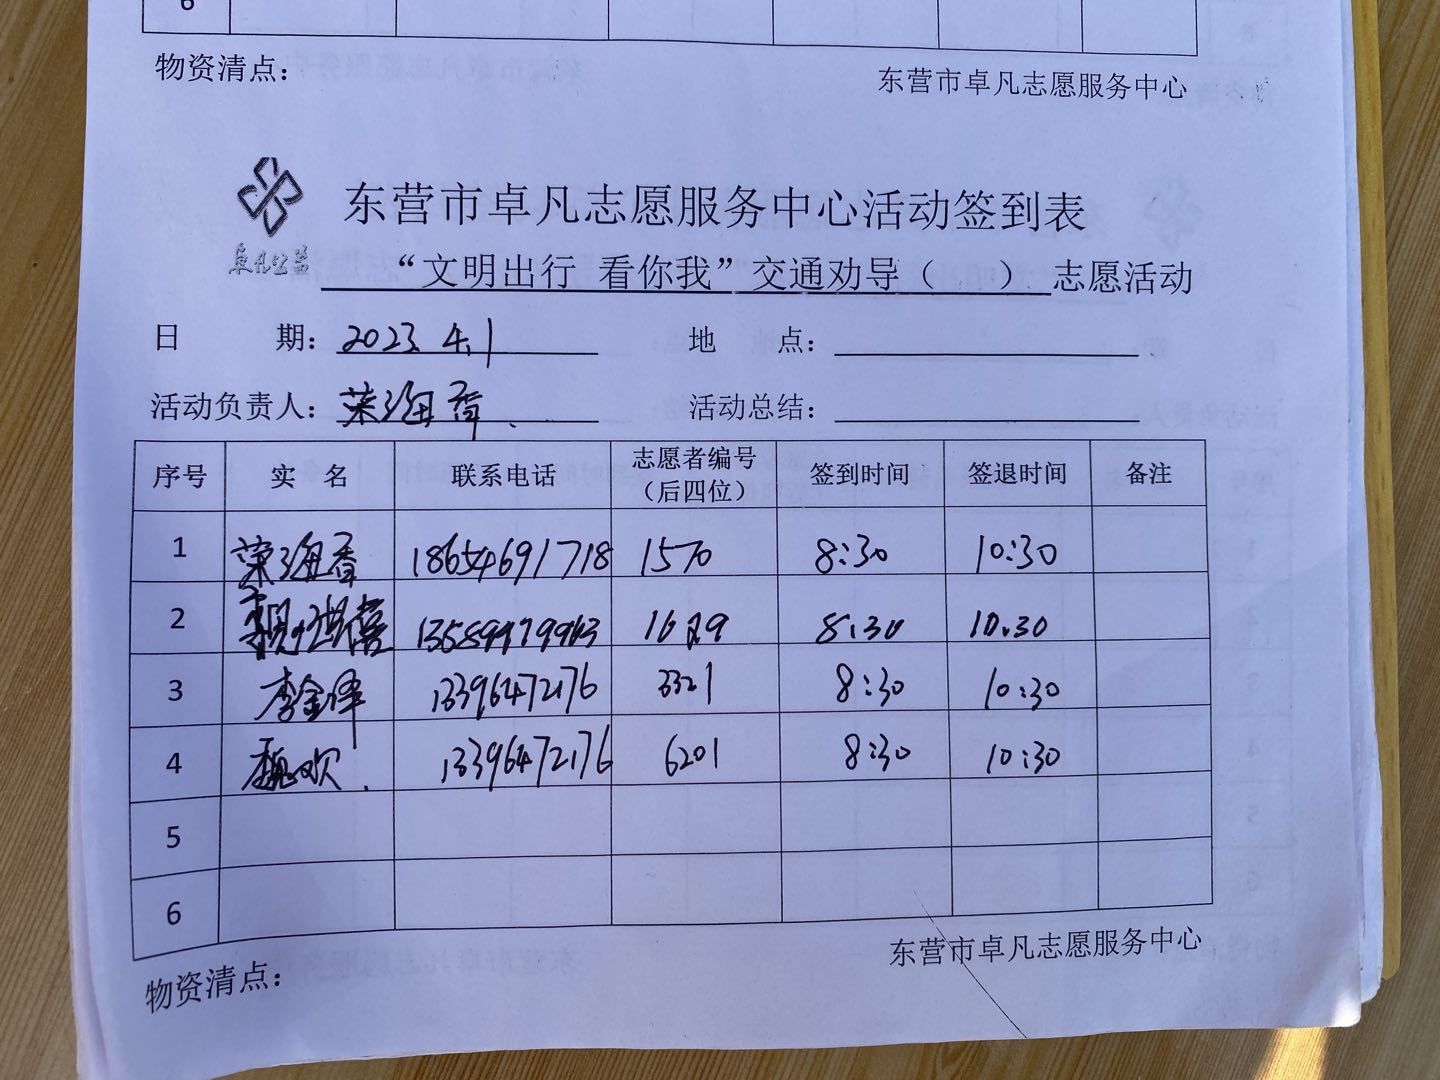 6
物资清点：
东营市卓凡志愿服务中心
东营市卓凡志愿服务中心活动签到表
卓凡公益
“文明出行 看你我”交通劝导（ ）志愿活动
日 期：2023.4.1 地 点：
活动负责人：荣海香 活动总结：
序号 实 名 联系电话 志愿者编号（后四位） 签到时间 签退时间 备注
1 荣海香 18654691718 1570 8:30 10:30
2 8:30 10:30
3 13396472176 3321 8:30 10:30
4 魏欢 13396472176 6201 8:30 10:30
5
6
物资清点：
东营市卓凡志愿服务中心